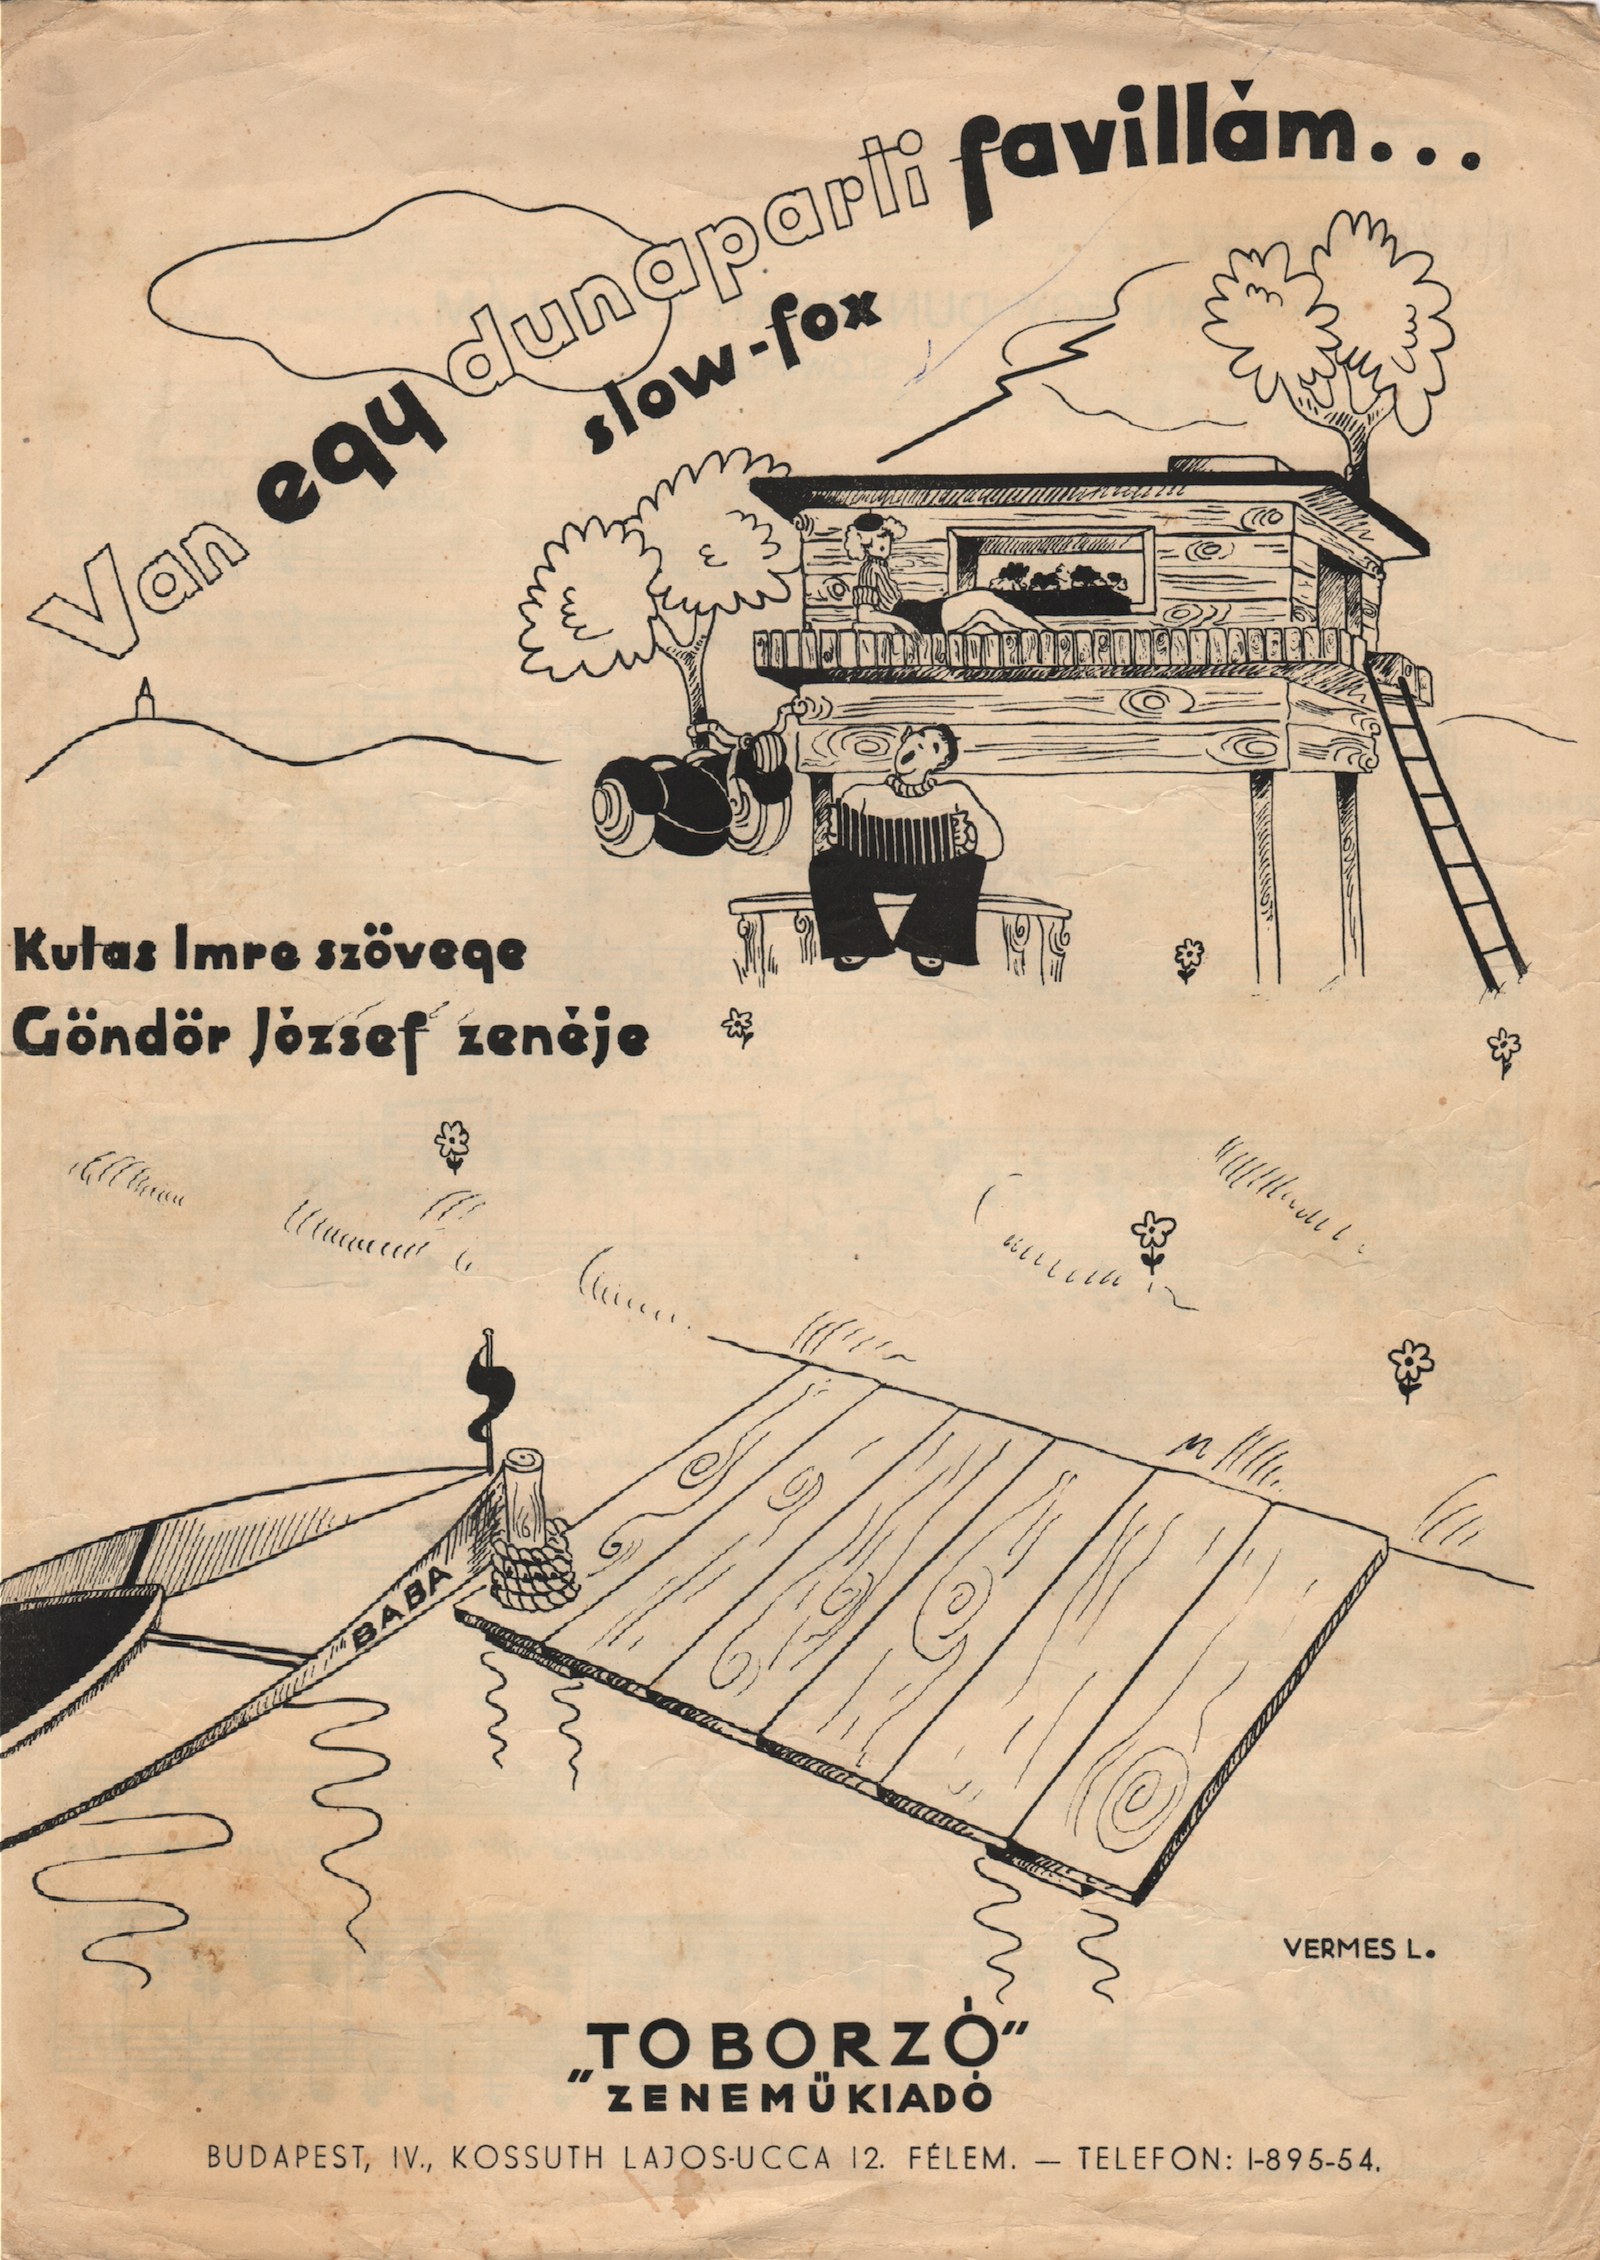 Van egy dunaparti favillám...
slow-fox
Kutas Imre szövege
Göndör József zenéje
BABA
VERMES L.
„TOBORZÓ”
ZENEMŰKIADÓ
BUDAPEST, IV., KOSSUTH LAJOS-UCCA 12. FÉLEM. — TELEFON: 1-895-54.